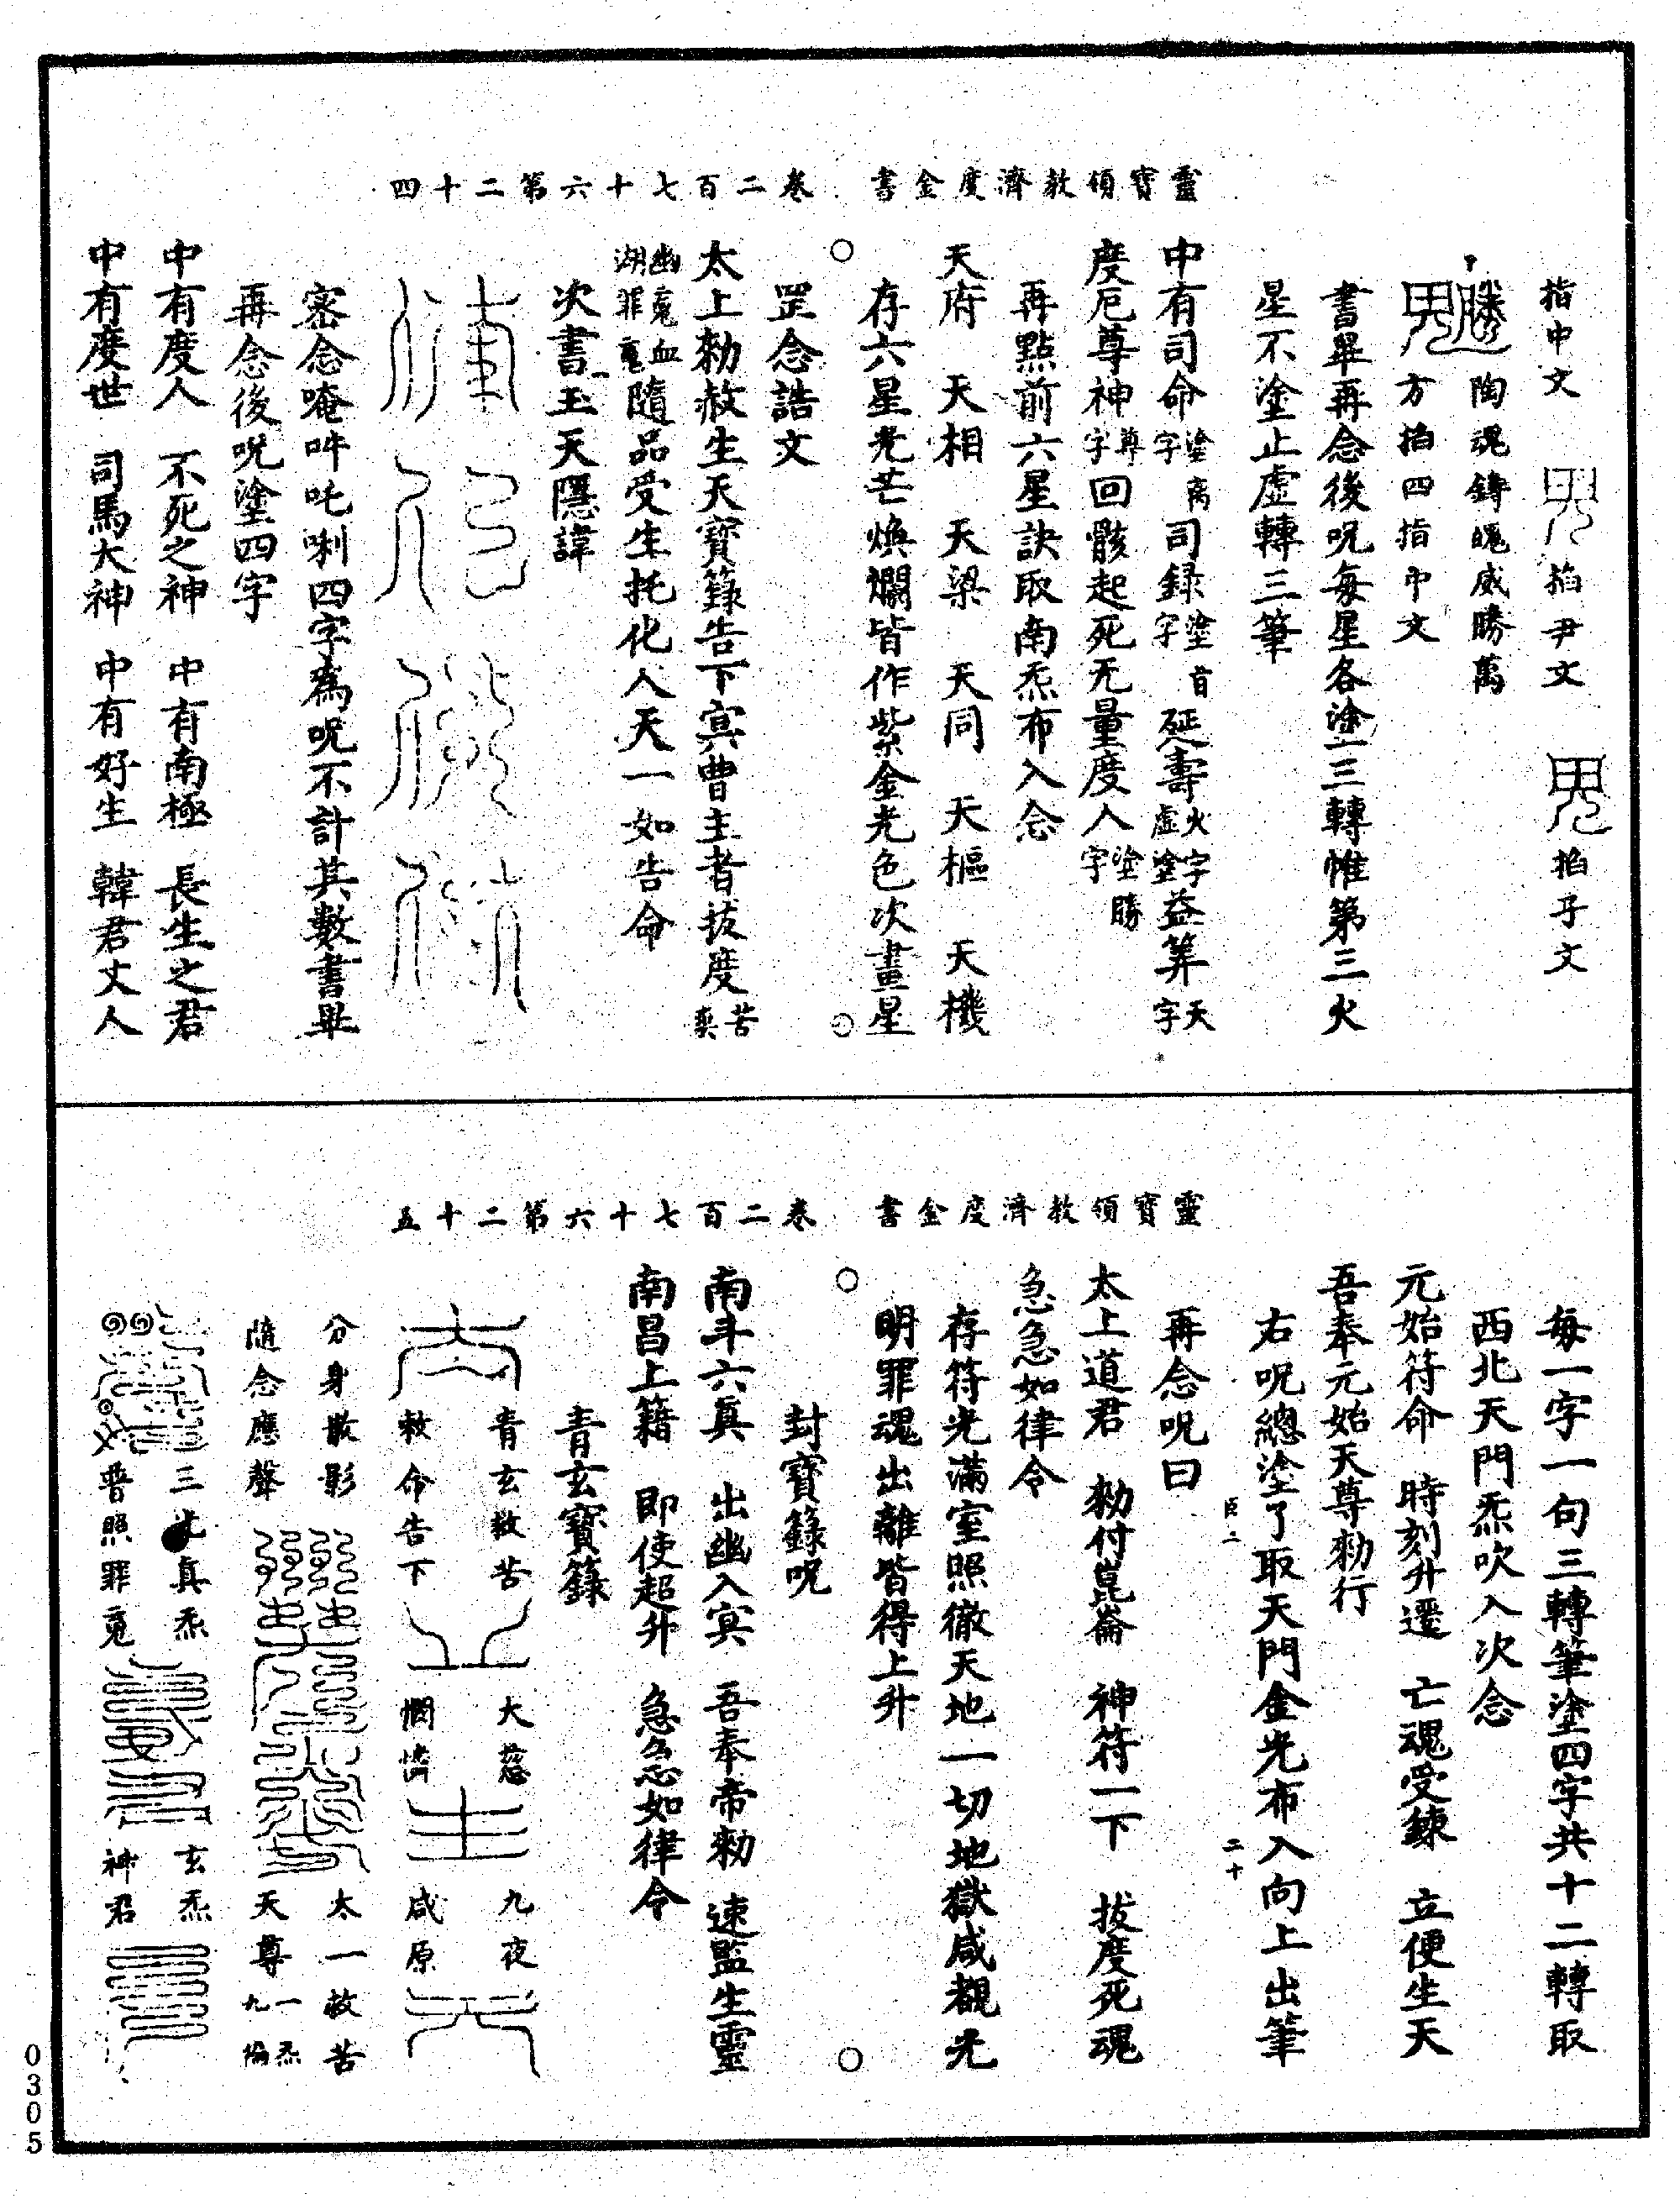 靈寶領教濟度金書　卷二百七十六第二十四
指中文　掐尹文　掐子文
陶魂鑄魄威勝萬
方掐四指中文
書畢再念後呪每星各塗三轉惟第三火
星不塗止虛轉三筆
中有司命塗离字司錄塗首字延壽火字虛塗益筭天字
度厄尊神尊字回骸起死无量度人塗勝字
再點前六星訣取南炁布入念
天府　天相　天梁　天同　天樞　天機
存六星光芒煥爛皆作紫金光色次畫星
罡念誥文
太上勑赦生天寶籙告下冥曹主者拔度苦爽
幽䰟血湖罪䰟隨品受生托化人天一如告命
次書玉天隱諱
密念唵吽吒唎四字為呪不計其數書畢
再念後呪塗四字
中有度人　不死之神　中有南極　長生之君
中有度世　司馬大神　中有好生　韓君丈人
靈寶領教濟度金書　卷二百七十六第二十五
每一字一句三轉筆塗四字共十二轉取
西北天門炁吹入次念
元始符命　時刻升遷　亡魂受鍊　立便生天
吾奉元始天尊勑行
右呪總塗了取天門金光布入向上出筆
再念呪曰
太上道君　勑付崑崙　神符一下　拔度死魂
急急如律令
存符光滿室照徹天地一切地獄咸覩光
明罪魂出離皆得上升
封寶籙呪
南斗六真　出幽入冥　吾奉帝勑　速監生靈
南昌上籍　即使超升　急急如律令
青玄寶籙
青玄救苦　大慈　九夜
敕命告下　憫憐　咸原
分身散影　太一救苦
隨念應聲　天尊一炁九徧
三光真炁　玄炁
普照罪䰟　神君
0305